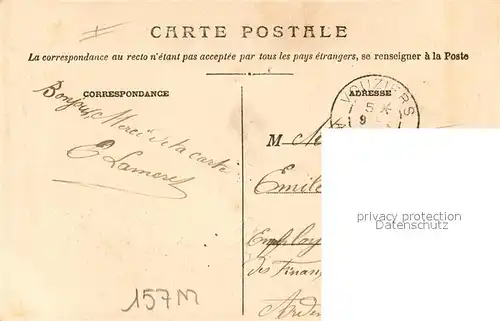 CARTE POSTALE
La correspondance au recto n'étant pas acceptée par tous les pays étrangers, se renseigner à la Poste
CORRESPONDANCE
ADRESSE
VOUZIERS
5
9
Bonjour, Merci de la carte
E Lameret
M
Emile
Employ
des Finan
Arde
157M
privacy protection
Datenschutz